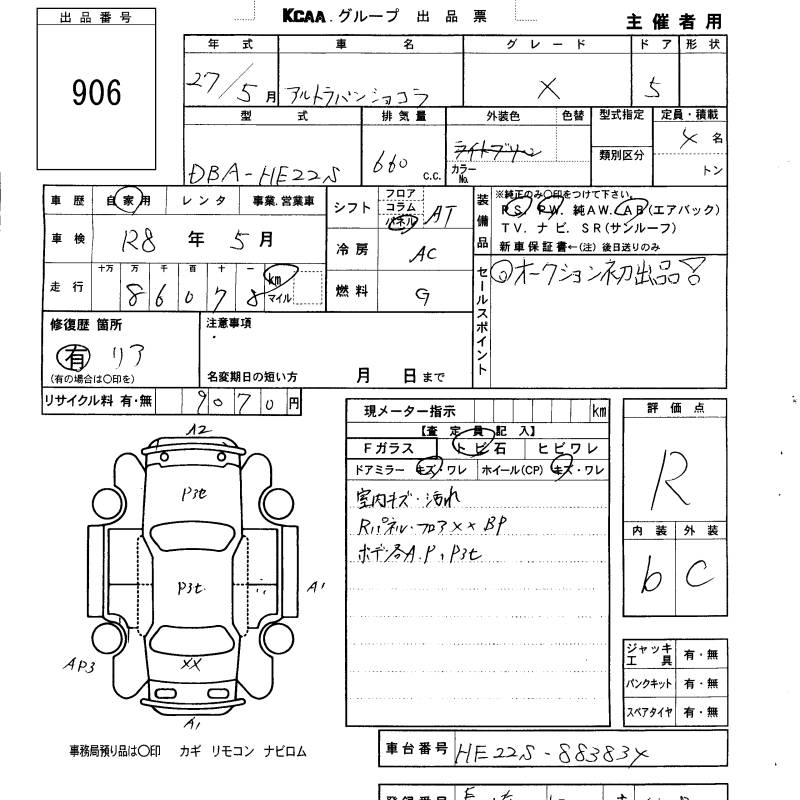 KCAA.グループ 出品票
主催者用
出品番号
906
年式 車名 グレード ドア 形状
27/5月 アルトラパンショコラ X 5
型式 排気量 外装色 色替 型式指定 定員・積載
DBA-HE22S 660 c.c. カラーNo. 類別区分 4名
トン
車歴 自家用 レンタ 事業.営業車
車検 R8年5月
走行 十万 万 千 百 十 一
86078 km マイル
シフト フロア コラム パネル AT
冷房 AC
燃料 G
装備品 ※純正のみ○印をつけて下さい。
PS. PW. 純AW. AB(エアバック)
TV. ナビ. SR(サンルーフ)
新車保証書←(注) 後日送りのみ
セールスポイント
オークション初出品
修復歴 箇所
有 リア
(有の場合は○印を)
注意事項
名変期日の短い方 月 日まで
リサイクル料 有・無 9070円
現メーター指示 km
【査定員記入】
Fガラス トビ石 ヒビワレ
ドアミラー キズ・ワレ ホイール(CP) キズ・ワレ
室内キズ・汚れ
Rパネル・フロアXX BP
ボデー各A.P、P3t
評価点
R
内装 外装
b C
A2
P3t
P3t
A1
AP3
XX
A1
ジャッキ工具 有・無
パンクキット 有・無
スペアタイヤ 有・無
事務局預り品は○印 カギ リモコン ナビロム
車台番号 HE22S-883834
登録番号